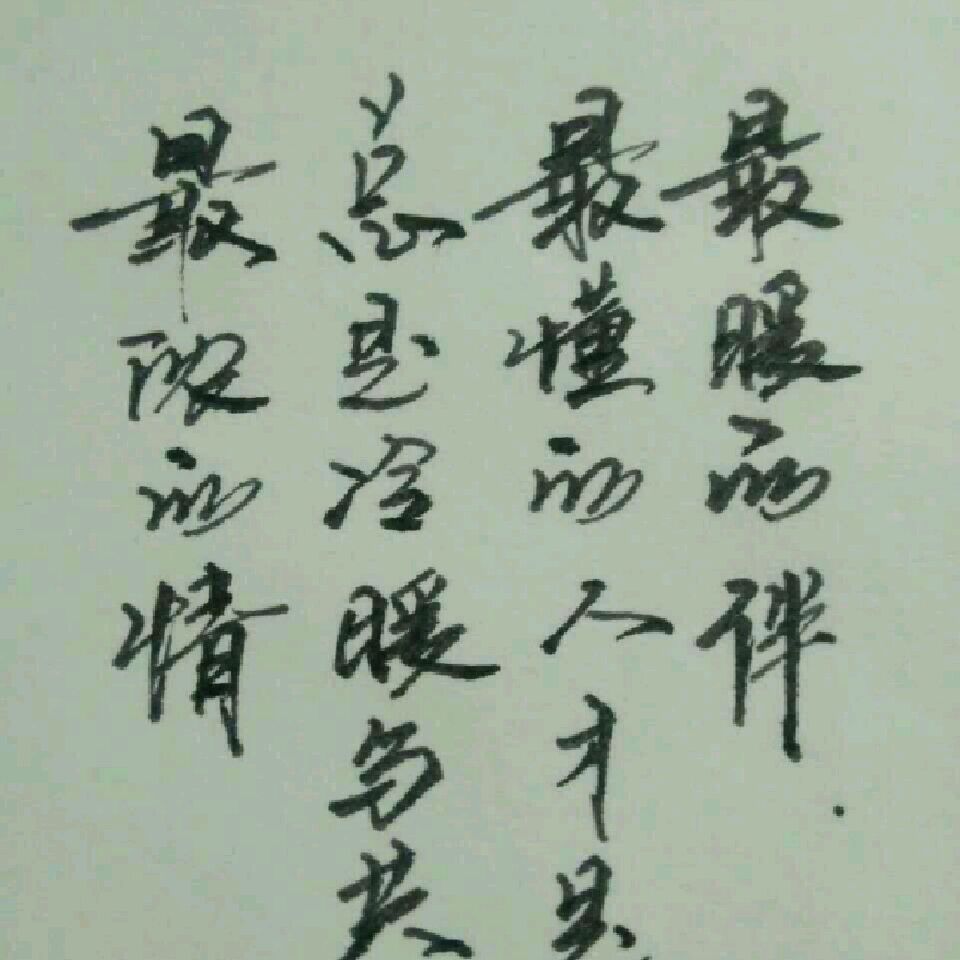 最浓的情
总是冷暖与共
最懂的人才是
最暖的伴.